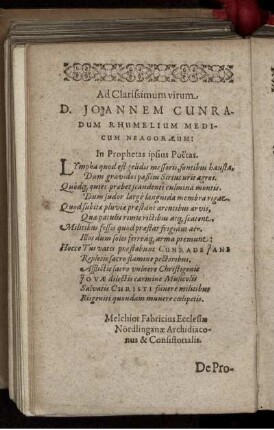 Ad Clarissimum virum
D. JOANNEM CUNRA-
DUM RHUMELIUM MEDI-
CUM NEAGORÆUM:
In Prophetas ipsius Poëtas.
LYmpha quod est gelidis messori, fontibus hausta,
Dum gravidos passim Sirius urit agros.
Quodq́, quies præbet scandenti culmina montis.
Dum sudor largè languida membra rigat.
Quod subitæ pluviæ præstant arentibus arvis,
Quæ patulis rimis victibus arq́,
Militibus fessis quod præstat frigidum aër.
Illos dum soles ferreaq́, arma premunt:
Hocce Tui vates præstabunt CONRADE JANE
Repletis sacro flamine pectoribus,
Afflictis sacro vulnere Christigenis
JOVÆ dilectis carmine Musicolis
Salvatis CHRISTI funere militibus
Rigenitis quondam munere cœlipetis.
Melchior Fabricius Ecclesiæ
Nördlinganæ Archidiaco-
nus & Consistorialis.
De Pro-